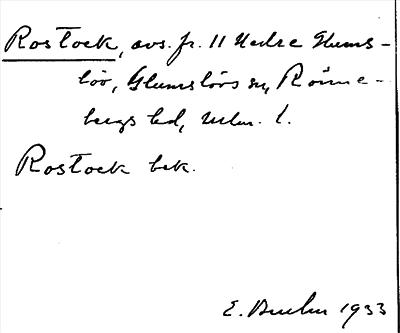 Rostock, avs. fr. 11 Nedre Glums-
löv, Glumslövs sn, Rönne-
bergs hd, Mlm. l.
Rostock bek.
E. 1933